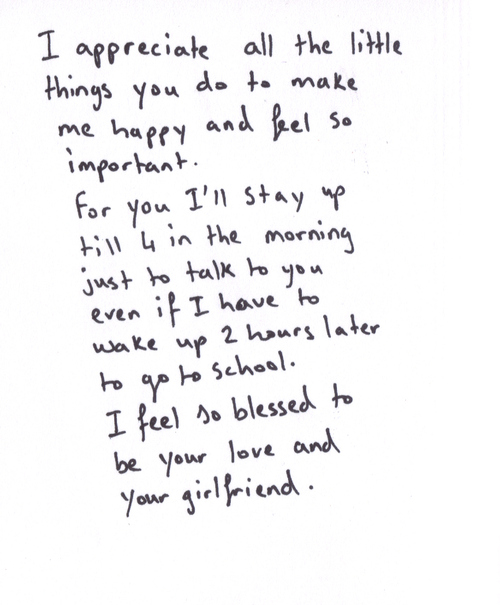 I appreciate all the little
things you do to make
me happy and feel so
important.
For you I'll stay up
till 4 in the morning
just to talk to you
even if I have to
wake up 2 hours later
to go to school.
I feel so blessed to
be your love and
your girlfriend.